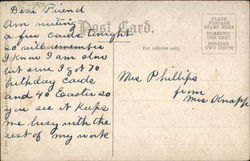 Dear Friend
Am writing
a few cards tonight
so will remember
I know I am slow
but sure I got 70
birthday cards
and 40 Easter so
you see it keeps
me busy with the
rest of my work
Post Card.
For Address only.
PLACE
POSTAGE
STAMP HERE
DOMESTIC
ONE CENT
FOREIGN
TWO CENTS
Mrs Phillips
from
Mrs Knapp